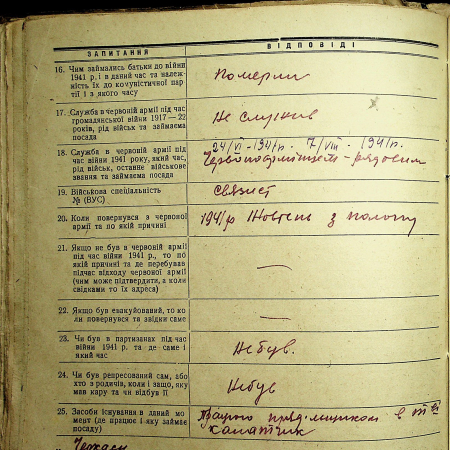 ЗАПИТАННЯ
ВІДПОВІДІ
16. Чим займались батьки до війни
1941 р. і в даний час та належ-
ність їх до комуністичної пар-
тії і з якого часу
померли
17. Служба в червоній армії під час
громадянської війни 1917—22
років, рід військ та займаєма
посада
Не служив
18. Служба в червоній армії під
час війни 1941 року, який час,
рід військ, останнє військове
звання та займаєма посада
24/VI - 1941р. - 7/VIII - 1941р.
рядовим
19. Військова спеціальність
№ (ВУС)
связист
20. Коли повернувся з червоної
армії та по якій причині
1941р Жовтень з полону
21. Якщо не був в червоній армії
під час війни 1941 р., то по
якій причині та де перебував
підчас відходу червоної армії
(чим може підтвердити, а коли
свідками то їх адреса)
—
22. Якщо був евакуйований, то ко-
ли повернувся та звідки саме
—
23. Чи був в партизанах під час
війни 1941 р. та де саме і
який час
Не був.
24. Чи був репресований сам, або
хто з родичів, коли і защо, яку
мав кару та чи відбув її
Не був
25. Засоби існування в даний мо-
мент (де працює і яку займає
посаду)
в
канатчик